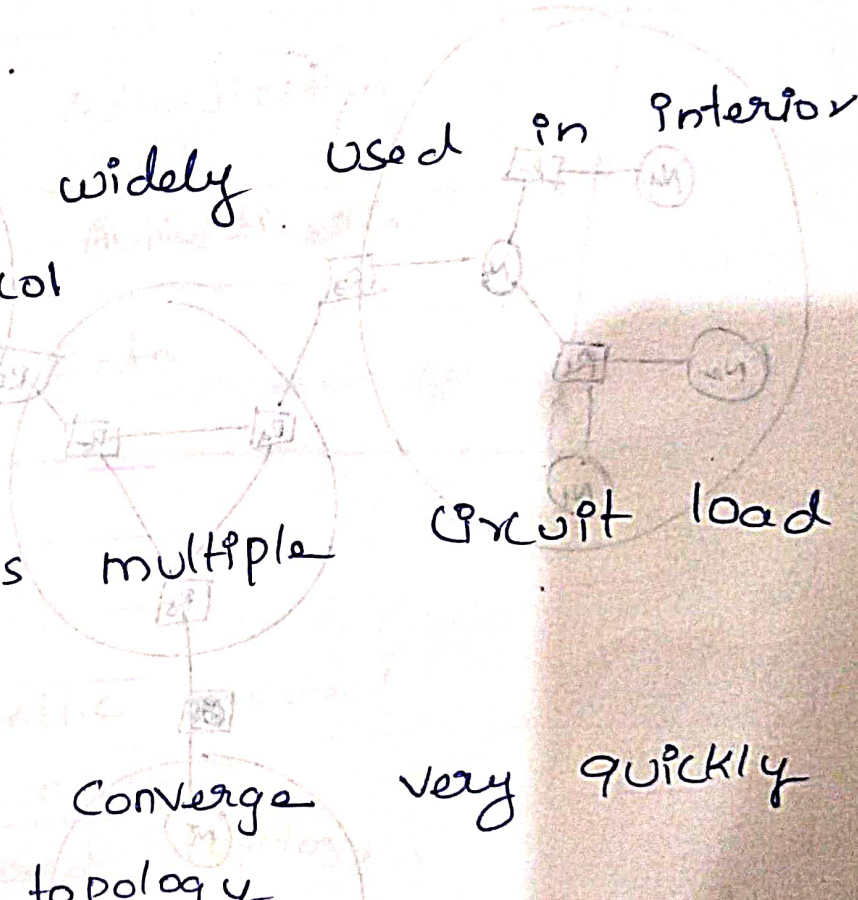 widely used in interior
col
s multiple circuit load
converge very quickly
topology